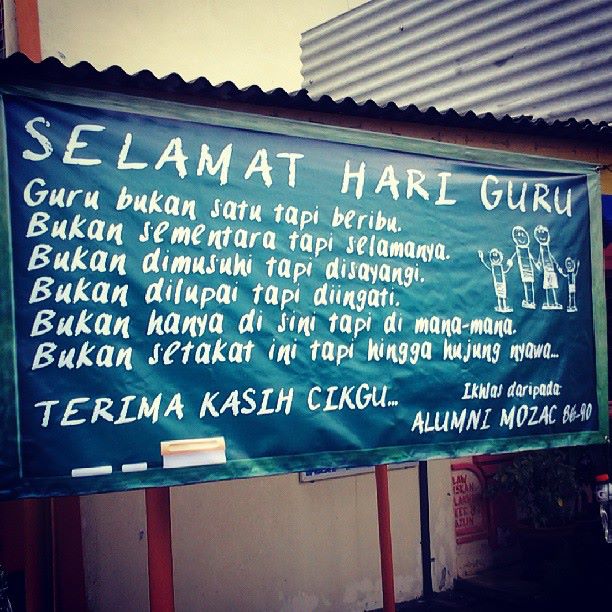 SELAMAT HARI GURU
Guru bukan satu tapi beribu.
Bukan sementara tapi selamanya.
Bukan dimusuhi tapi disayangi.
Bukan dilupai tapi diingati.
Bukan hanya di sini tapi di mana-mana.
Bukan setakat ini tapi hingga hujung nyawa...
TERIMA KASIH CIKGU...
Ikhlas daripada:
ALUMNI MOZAC 86-90